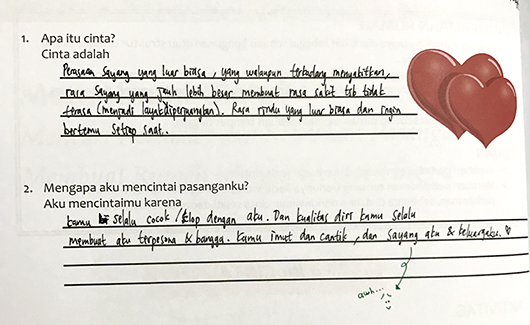 1. Apa itu cinta?
Cinta adalah
Perasaan sayang yang luar biasa, yang walaupun terkadang menyakitkan,
rasa sayang yang jauh lebih besar membuat rasa sakit tsb tidak
terasa (menjadi layak diperjuangkan). Rasa rindu yang luar biasa dan ingin
bertemu setiap saat.
2. Mengapa aku mencintai pasanganku?
Aku mencintaimu karena
kamu selalu cocok / klop dengan aku. Dan kualitas diri kamu selalu
membuat aku terpesona & bangga. Kamu imut dan cantik, dan sayang aku & keluargaku. ♡
awh... :')